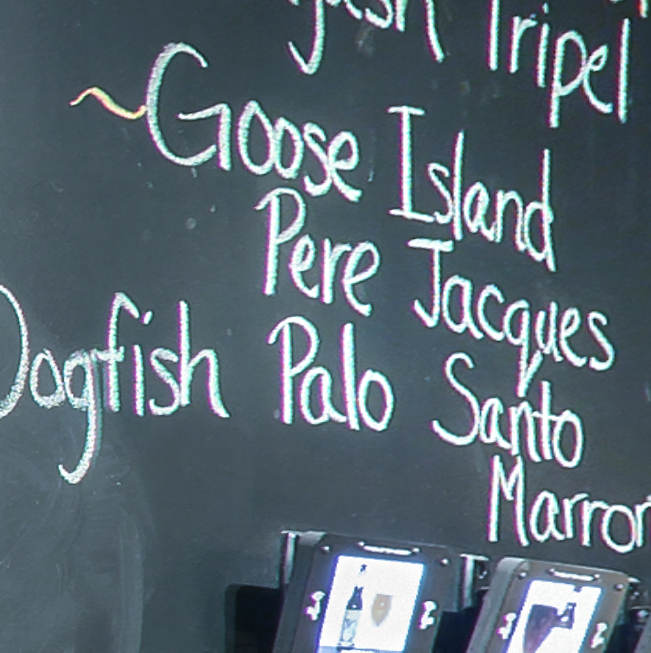 Tripel
~Goose Island
Pere Jacques
Dogfish Palo Santo
Marron